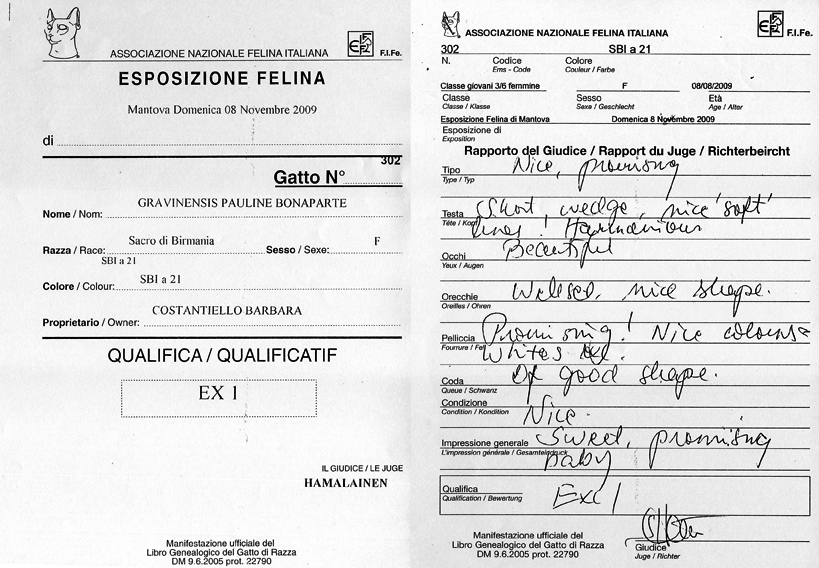 ASSOCIAZIONE NAZIONALE FELINA ITALIANA F.I.Fe.
ESPOSIZIONE FELINA
Mantova Domenica 08 Novembre 2009
di
302
Gatto N°
GRAVINENSIS PAULINE BONAPARTE
Nome / Nom:
Sacro di Birmania F
Razza / Race: Sesso / Sexe:
SBI a 21
SBI a 21
Colore / Colour:
COSTANTIELLO BARBARA
Proprietario / Owner:
QUALIFICA / QUALIFICATIF
EX 1
IL GIUDICE / LE JUGE
HAMALAINEN
Manifestazione ufficiale del
Libro Genealogico del Gatto di Razza
DM 9.6.2005 prot. 22790
ASSOCIAZIONE NAZIONALE FELINA ITALIANA F.I.Fe.
302 SBI a 21
N. Codice Colore
Ems - Code Couleur / Farbe
Classe giovani 3/6 femmine F 08/08/2009
Classe Sesso Età
Classe / Klasse Sexe / Geschlecht Age / Alter
Esposizione Felina di Mantova Domenica 8 Novembre 2009
Esposizione di
Exposition
Rapporto del Giudice / Rapport du Juge / Richterbeircht
Tipo Nice, promising
Type / Typ
Testa Short wedge, nice 'soft'
Tête / Kopf lines! Harmonious
Occhi Beautiful
Yeux / Augen
Orecchie Wellset, nice shape.
Oreilles / Ohren
Pelliccia Promising! Nice colours
Fourrure / Fell Whites
Coda Of good shape.
Queue / Schwanz
Condizione
Condition / Kondition Nice.
Impressione generale Sweet, promising
L'impression générale / Gesamteindruck baby
Qualifica Exc 1
Qualification / Bewertung
Giudice
Juge / Richter
Manifestazione ufficiale del
Libro Genealogico del Gatto di Razza
DM 9.6.2005 prot. 22790